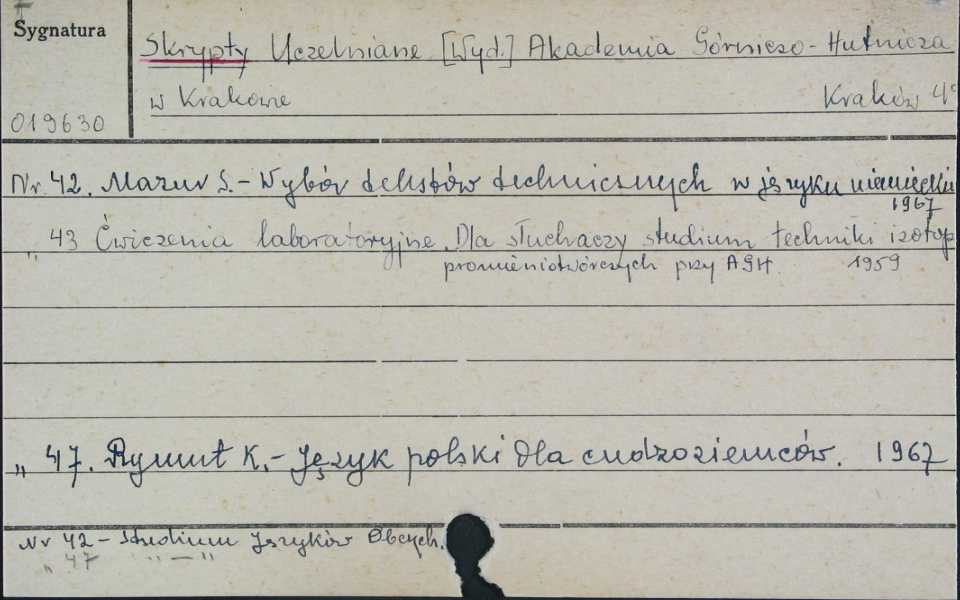 Sygnatura
Skrypty Uczelniane [Wyd.] Akademia Górniczo-Hutnicza
w Krakowie Kraków 4°
019630
Nr. 42. Mazur S. - Wybór tekstów technicznych w języku niemieckim
1967
„ 43 Ćwiczenia laboratoryjne. Dla słuchaczy studium techniki izotop
promieniotwórczych przy AGH. 1959
„ 47. Rymut K. - Język polski dla cudzoziemców. 1967
Nr 42 - Studium Języków Obcych.
„ 47 „ — „